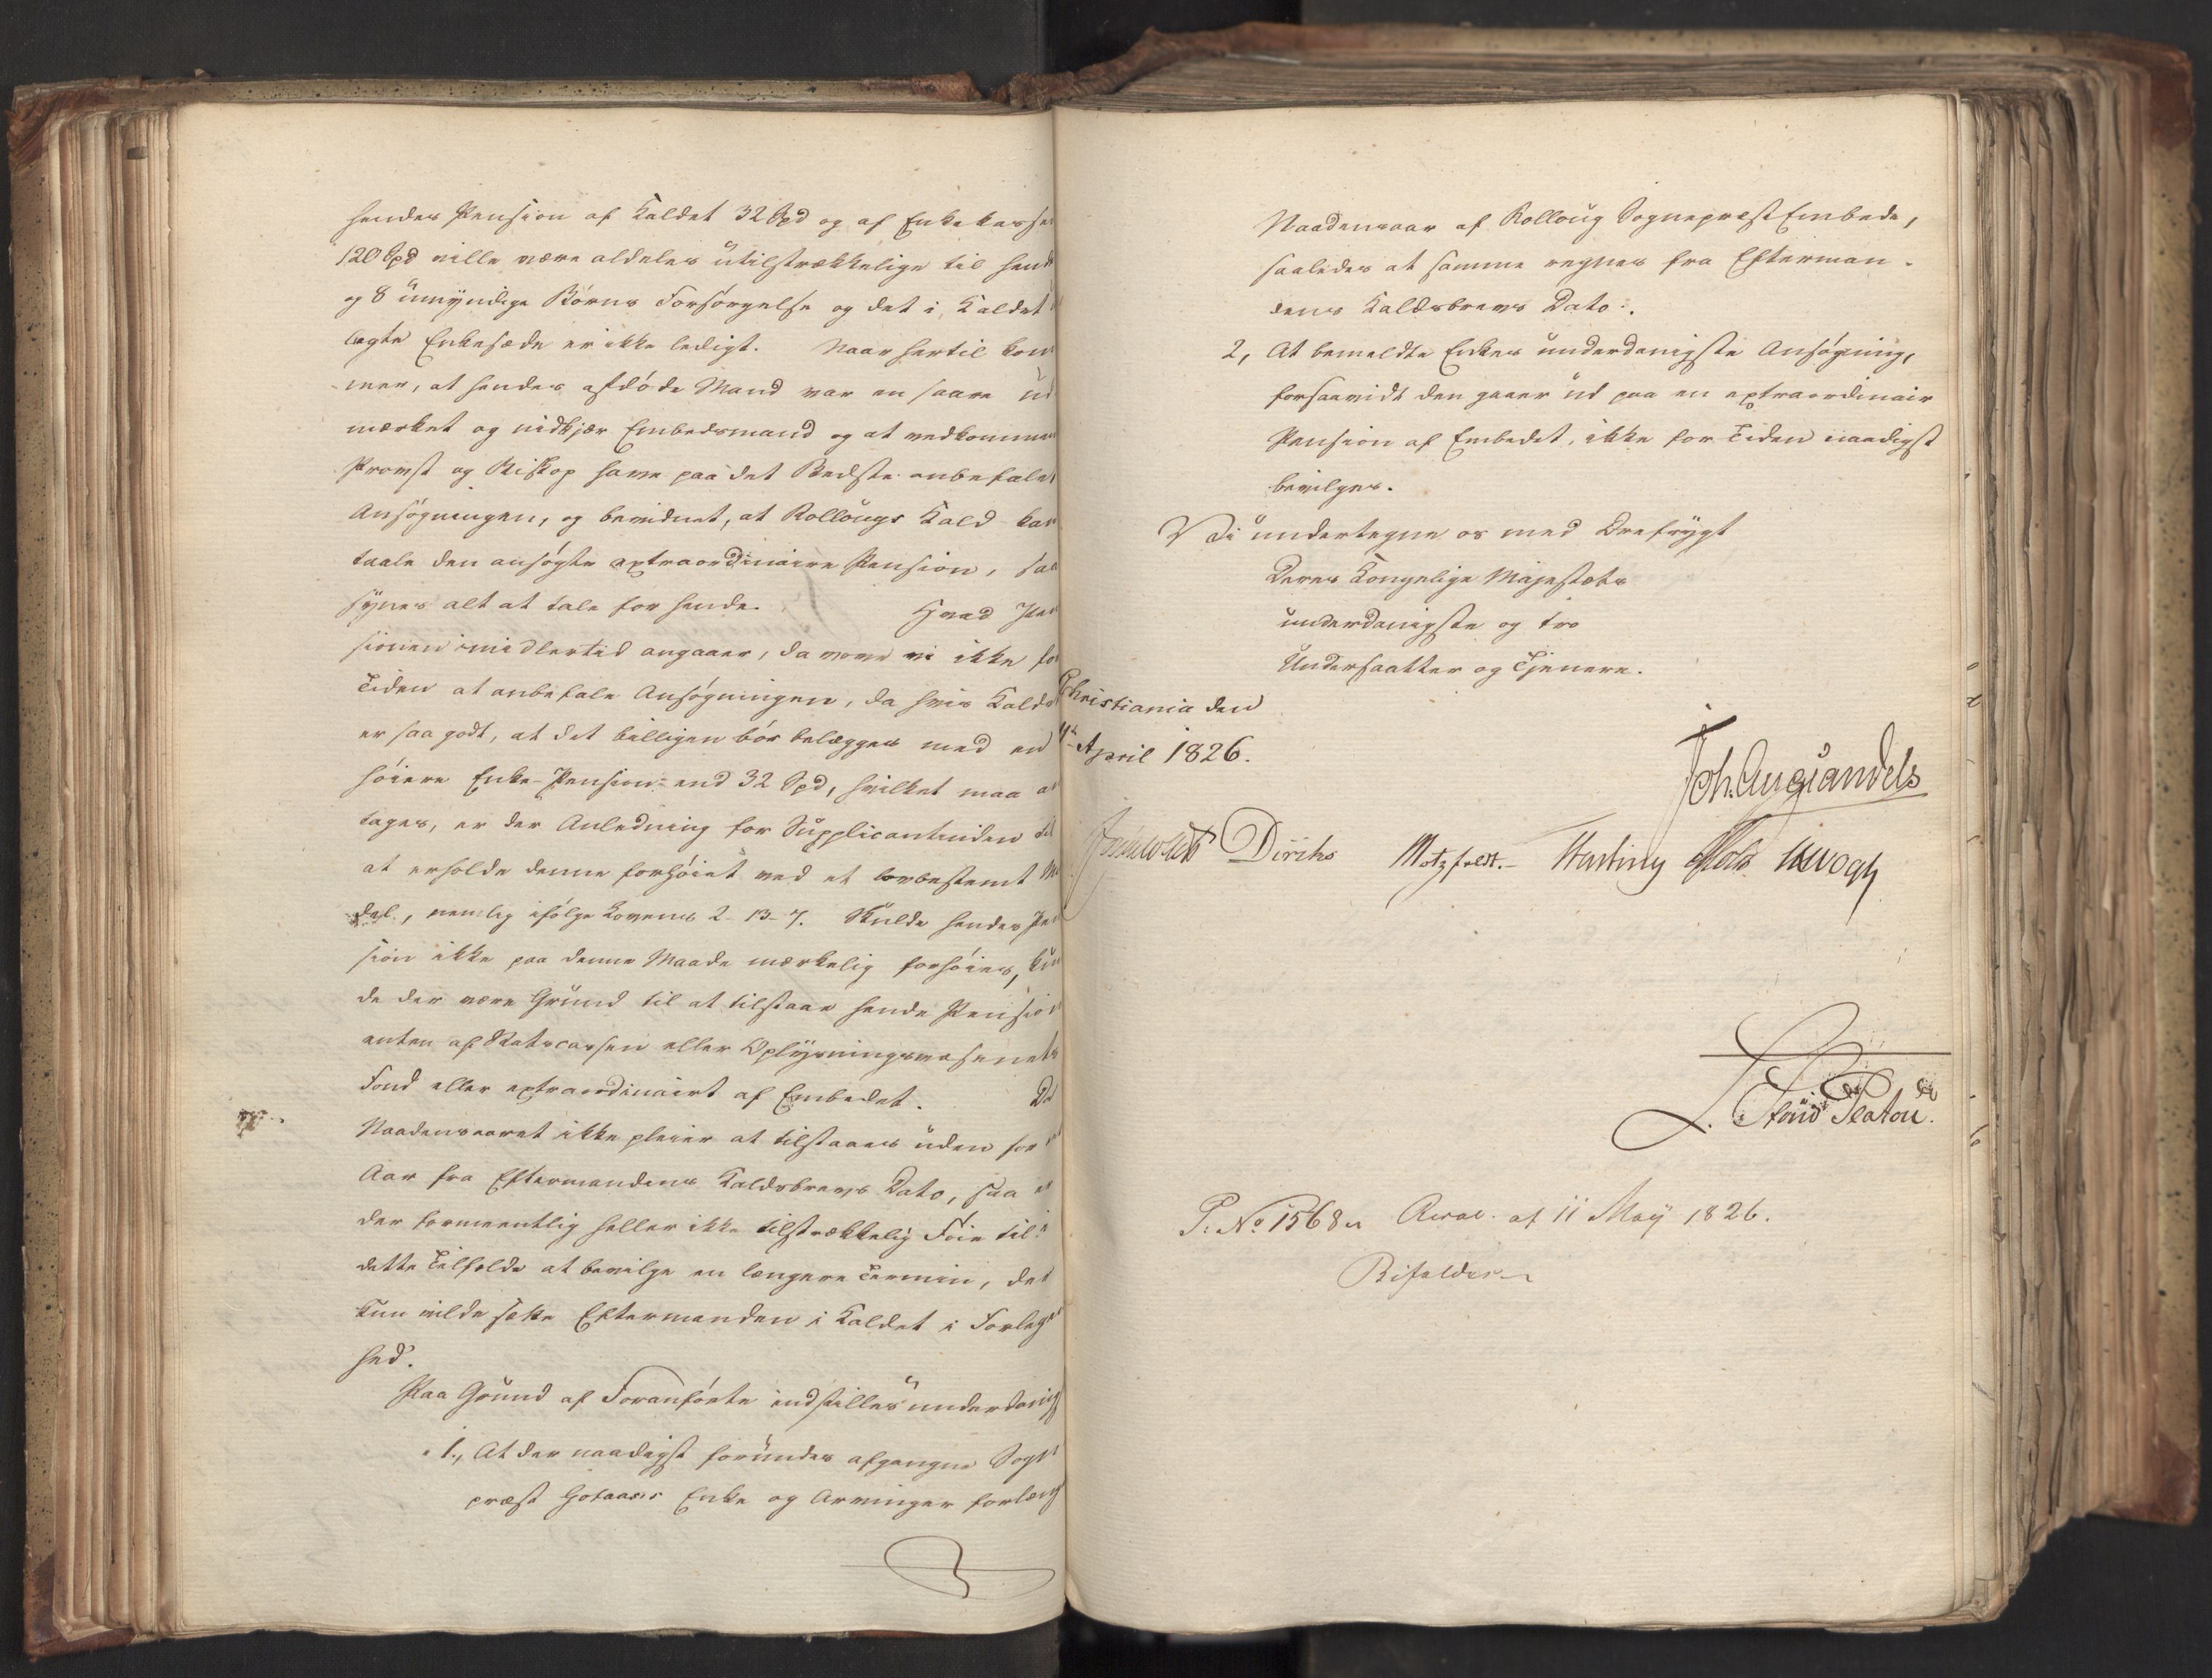 hendes Pension af Kaldet 32 Spd og af Enkekassen
120 Spd ville være aldeles utilstrækkelige til hende
og 8 umyndige Børns Forsørgelse og det i Kaldet
lagte Enkesæde er ikke ledigt. Naar hertil kom
mer, at hendes afdøde Mand var en saare ud
mærket og nidkjær Embedsmand og at vedkommen
Provst og Biskop have paa det Bedste anbefalet
Ansøgningen, og bevidnet, at Rollougs Kald kan
taale den ansøgte extraordinaire Pension, saa
synes alt at tale for hende. Hvad Pen
sionen imidlertid angaaer, da vove vi ikke for
Tiden at anbefale Ansøgningen, da hvis Kaldet
er saa godt, at det billigen bør belægges med en
høiere Enke-Pension end 32 Spd, hvilket maa an
tages, er der Anledning for Supplicantinden til
at erholde denne forhøiet ved et lovbestemt Mid
del, nemlig ifølge Lovens 2-13-7. Skulde hendes Pen
sion ikke paa denne Maade mærkelig forhøies, kun
de der være Grund til at tilstaae hende Pension
enten af Statscassen eller Oplysningsvæsenets
Fond eller extraordinairt af Embedet. Da
Naadensaaret ikke pleier at tilstaaes uden for et
Aar fra Eftermandens Kaldsbrevs Dato, saa er
der formeentlig heller ikke tilstrækkelig Føie til i
dette Tilfælde at bevilge en længere Termin, der
kun vilde sætte Eftermanden i Kaldet i Forlegen
hed.
Paa Grund af Foranførte indstilles underdanigst
1., At der naadigst forundes afgangne Sogne
præst Gotaas's Enke og Arvinger forlænget
Naadensaar af Rolloug Sognepræst Embede,
saaledes at samme regnes fra Efterman-
dens Kaldsbrevs Dato.
2, At bemeldte Enkes underdanigste Ansøgning,
forsaavidt den gaaer ud paa en extraordinair
Pension af Embedet, ikke for Tiden naadigst
bevilges.
Vi undertegne os med Ærefrygt
Deres Kongelige Majestæts
underdanigste og tro
Undersaatter og Tjenere.
Christiania den
April 1826.
Joh. Aug Sandels
Diriks Motzfeldt. Krogh
P: No 1568 Resol. af 11 May 1826.
Bifaldes